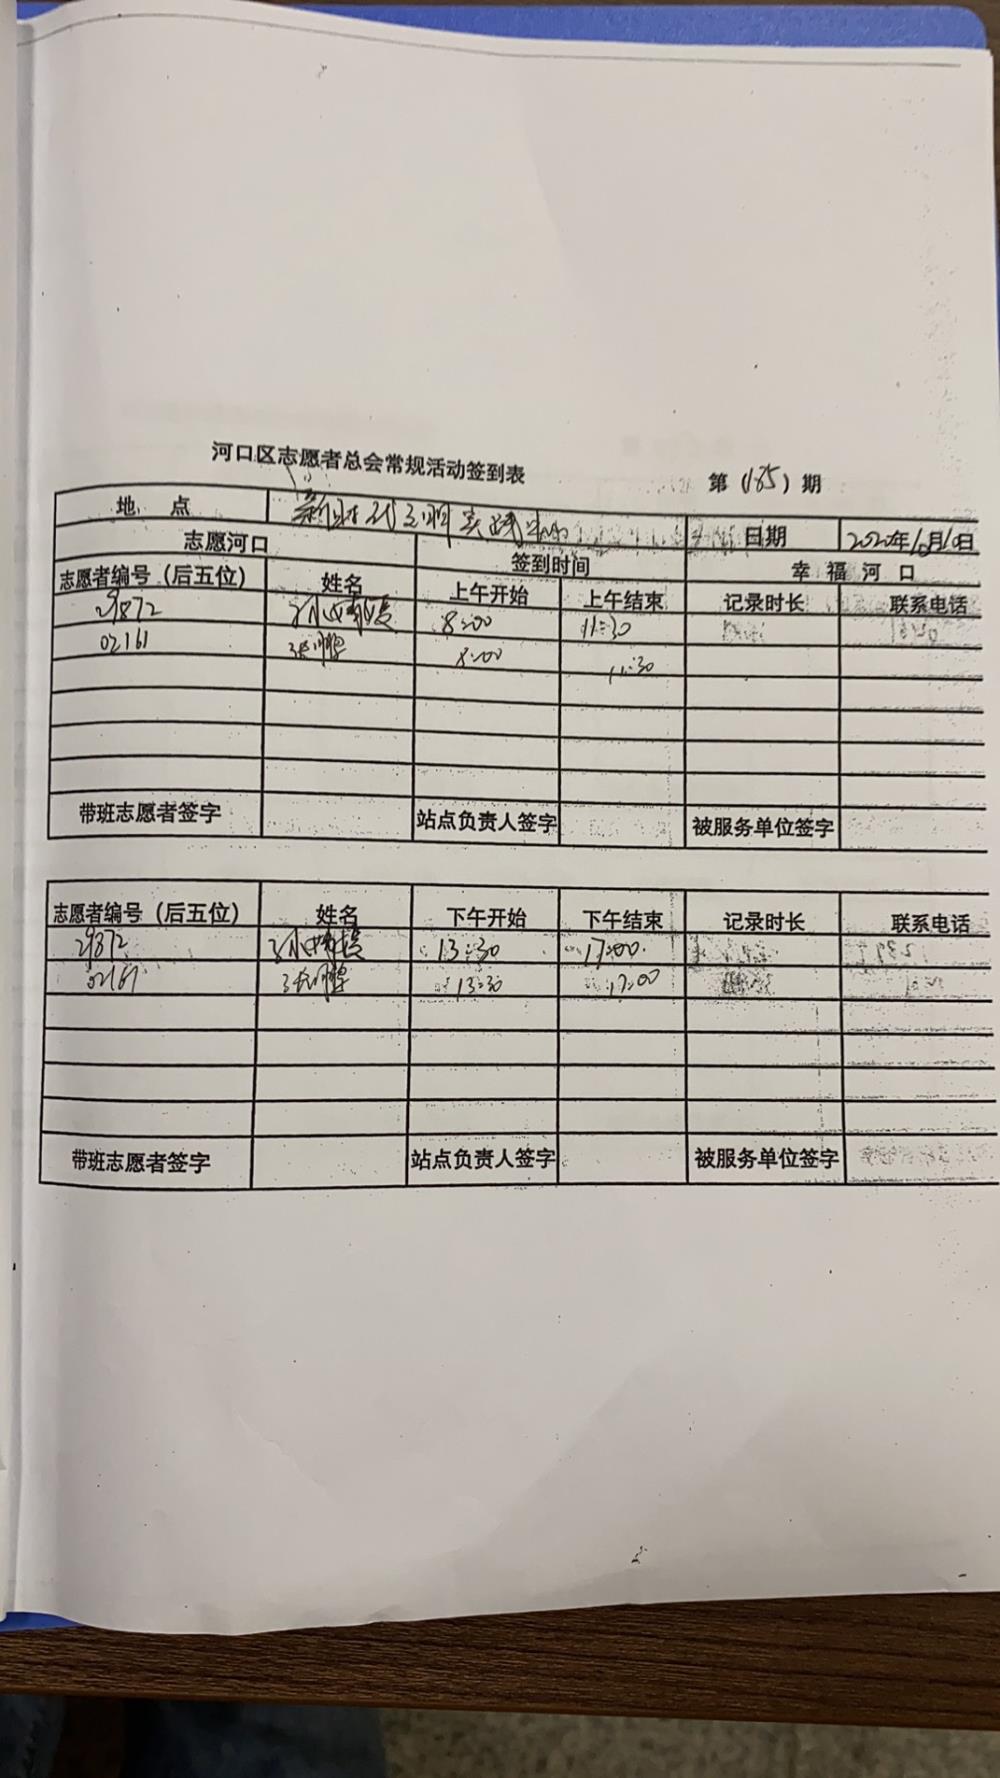 河口区志愿者总会常规活动签到表 第（185）期
地 点 新时代文明实践 日期 2020年10月10日
志愿河口 签到时间 幸 福 河 口
志愿者编号（后五位） 姓名 上午开始 上午结束 记录时长 联系电话
29872 8:00 11:30
02161 张鹏 8:00 11:30
带班志愿者签字 站点负责人签字 被服务单位签字
志愿者编号（后五位） 姓名 下午开始 下午结束 记录时长 联系电话
29872 13:30 17:00
02161 张鹏 13:30 17:00
带班志愿者签字 站点负责人签字 被服务单位签字